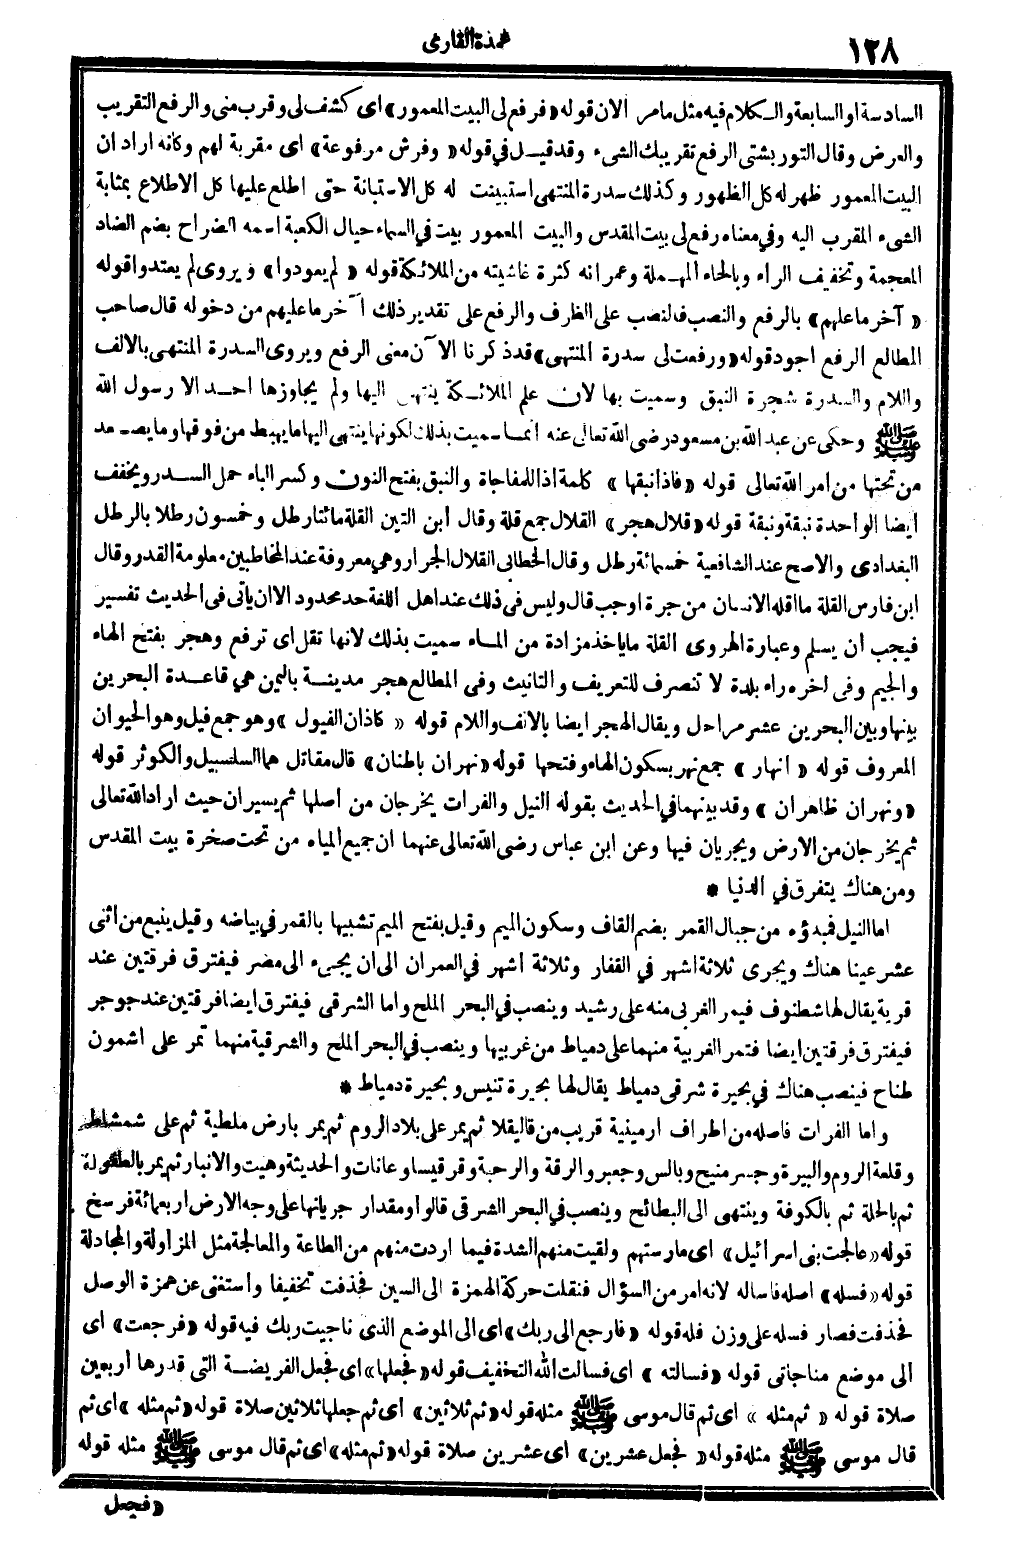 ١٢٨
عمدة القارى
السادسة او السابعة والكلام فيه مثل مامر الان قوله «فرفع لى البيت المعمور» اى كشف لى وقرب منى والرفع التقريب
والعرض وقال التور بشتى الرفع تقريبك الشىء وقد قيل فى قوله «وفرش مرفوعة» اى مقربة لهم وكانه اراد ان
البيت المعمور ظهر له كل الظهور وكذلك سدرة المنتهى استبينت له كل الاستبانة حتى اطلع عليها كل الاطلاع بمثابة
الشىء المقرب اليه وفي معناه رفع لى بيت المقدس والبيت المعمور بيت في السماء حيال الكعبة اسمه الضراح بضم الضاد
المعجمة وتخفيف الراء وبالحاء المهملة وعمرانه كثرة غاشيته من الملائكة قوله « لم يعودوا» ويروى لم يعتدوا قوله
« آخر ما عليهم» بالرفع والنصب فالنصب على الظرف والرفع على تقدير ذلك آخر ما عليهم من دخوله قال صاحب
المطالع الرفع اجود قوله «ورفعت لى سدرة المنتهى» قد ذكرنا الآن معنى الرفع ويروى السدرة المنتهى بالالف
واللام والسدرة شجرة النبق وسميت بها لان علم الملائكة ينتهى اليها ولم يجاوزها احد الا رسول الله
ﷺ وحكى عن عبد الله بن مسعود رضى الله تعالى عنه انما سميت بذلك لكونها ينتهى اليها ما يهبط من فوقها وما يصعد
من تحتها من امر الله تعالى قوله «فاذا نبقها» كلمة اذا للمفاجاة والنبق بفتح النون وكسر الباء حمل السدر ويخفف
ايضا الواحدة نبقة ونبقة قوله «قلال هجر» القلال جمع قلة وقال ابن التين القلة مائتا رطل وخمسون رطلا بالرطل
البغدادى والاصح عند الشافعية خمسمائة رطل وقال الخطابى القلال الجرار وهى معروفة عند المخاطبين معلومة القدر وقال
ابن فارس القلة ما اقله الانسان من جرة او جب قال وليس فى ذلك عند اهل اللغة حد محدود الا ان يأتى فى الحديث تفسير
فيجب ان يسلم وعبارة الهروى القلة ما ياخذ مزادة من الماء سميت بذلك لانها تقل اى ترفع وهجر بفتح الهاء
والجيم وفى اخره راء بلدة لا تنصرف للتعريف والتانيث وفى المطالع هجر مدينة باليمن هي قاعدة البحرين
بينها وبين البحرين عشر مراحل ويقال الهجر ايضا بالالف واللام قوله « كاذان الفيول » وهو جمع فيل وهو الحيوان
المعروف قوله « انهار » جمع نهر بسكون الهاء وفتحها قوله «نهران باطنان» قال مقاتل هما السلسبيل والكوثر قوله
«ونهران ظاهران » وقد بينهما في الحديث بقوله النيل والفرات يخرجان من اصلها ثم يسيران حيث اراد الله تعالى
ثم يخرجان من الارض ويجريان فيها وعن ابن عباس رضى الله تعالى عنهما ان جميع المياه من تحت صخرة بيت المقدس
ومن هناك يتفرق في الدنيا *
اما النيل فمبدؤه من جبال القمر بضم القاف وسكون الميم وقيل بفتح الميم تشبيها بالقمر في بياضه وقيل ينبع من اثنى
عشر عينا هناك ويجرى ثلاثة اشهر في القفار وثلاثة اشهر في العمران الى ان يجىء الى مصر فيفترق فرقتين عند
قرية يقال لها شطنوف فيمر الغربى منه على رشيد وينصب في البحر الملح واما الشرقى فيفترق ايضا فرقتين عند جوجر
فيفترق فرقتين ايضا فتمر الغربية منهما على دمياط من غربيها وينصب في البحر الملح والشرقية منهما تمر على اشمون
طناح فينصب هناك في بحيرة شرقى دمياط يقال لها بحيرة تنيس وبحيرة دمياط *
واما الفرات فاصله من اطراف ارمينية قريب من قاليقلا ثم يمر على بلاد الروم ثم يمر بارض ملطية ثم على شمشاط
وقلعة الروم والبيرة وجسر منبج وبالس وجعبر والرقة والرحبة وقرقيسا وعانات والحديثة وهيت والانبار ثم يمر بالطفولة
ثم بالحلة ثم بالكوفة وينتهى الى البطائح وينصب في البحر الشرقى قالوا ومقدار جريانها على وجه الارض اربعمائة فرسخ
قوله «عالجت بنى اسرائيل» اى مارستهم ولقيت منهم الشدة فيما اردت منهم من الطاعة والمعالجة مثل المزاولة والمجادلة
قوله «فسله» اصله فاساله لانه امر من السؤال فنقلت حركة الهمزة الى السين فحذفت تخفيفا واستغنى عن همزة الوصل
فحذفت فصار فسله على وزن فله قوله «فارجع الى ربك» اى الى الموضع الذى ناجيت ربك فيه قوله «فرجعت» اى
الى موضع مناجاتى قوله «فسالته » اى فسالت الله التخفيف قوله «فجعلها» اى فجعل الفريضة التى قدرها اربعين
صلاة قوله « ثم مثله » اى ثم قال موسى ﷺ مثله قوله «ثم ثلاثين» اى ثم جعلها ثلاثين صلاة قوله «ثم مثله » اى ثم
قال موسى ﷺ مثله قوله « فجعل عشرين» اى عشرين صلاة قوله «ثم مثله» اى ثم قال موسى ﷺ مثله قوله
«فجعل